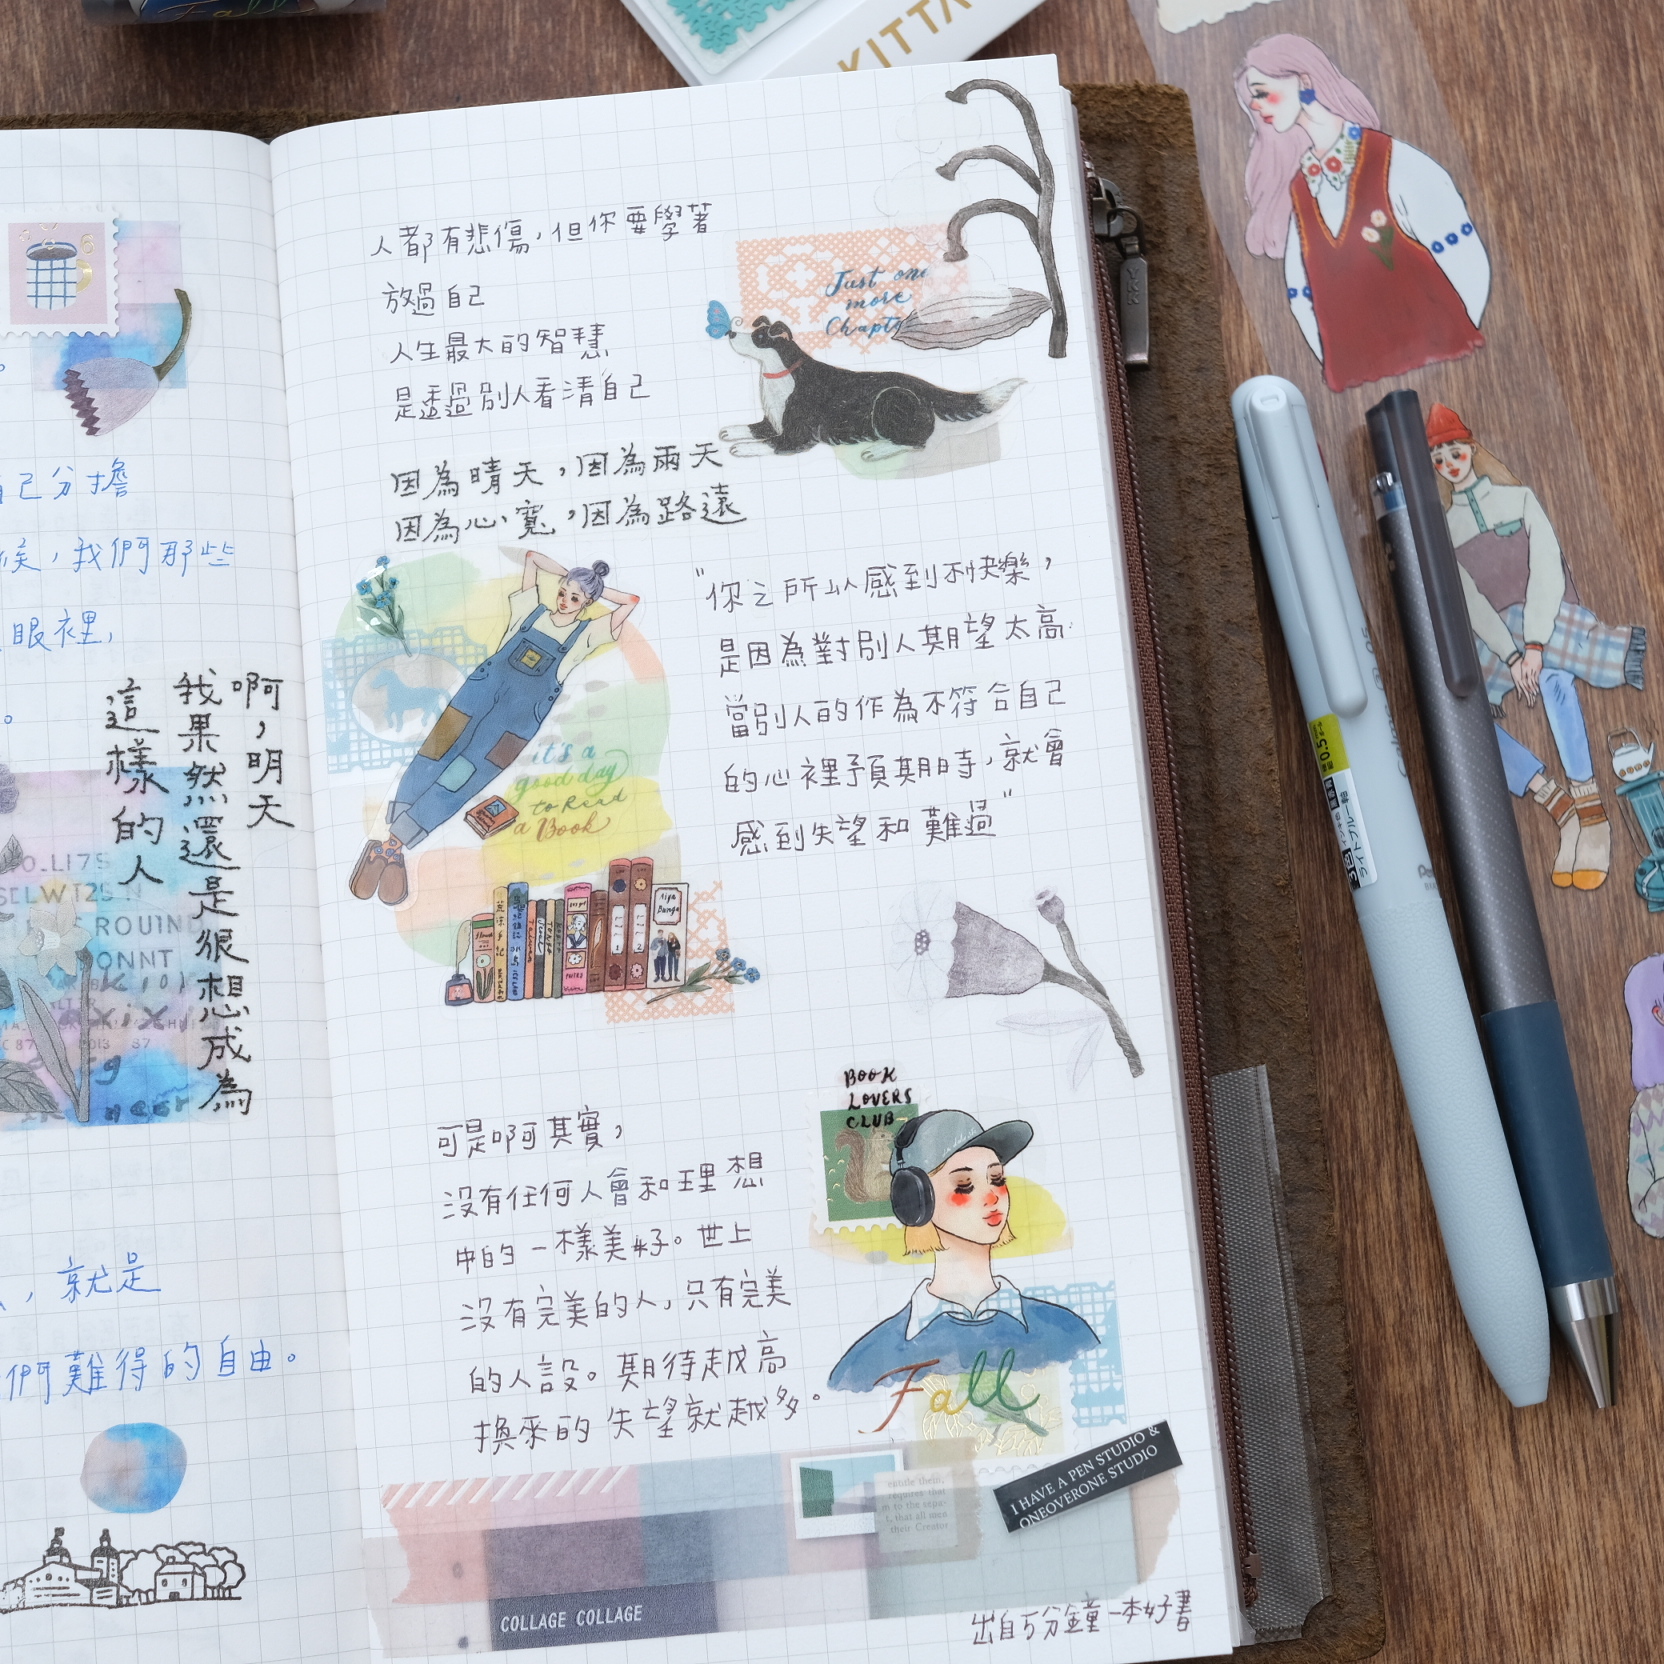 Fall
KITTA
自己分擔
候，我們那些
眼裡，
。
啊，明天
我果然還是很想成為
這樣的人
ROUIND
ONNT
2013 87
，就是
們難得的自由。
人都有悲傷，但你要學著
放過自己
人生最大的智慧
是透過別人看清自己
因為晴天，因為雨天
因為心寬，因為路遠
Just one
more
Chapt
"你之所以感到不快樂，
是因為對別人期望太高
當別人的作為不符合自己
的心裡預期時，就會
感到失望和難過"
it's a
good day
to Read
a Book
可是啊其實，
沒有任何人會和理想
中的一樣美好。世上
沒有完美的人，只有完美
的人設。期待越高
換來的失望就越多。
BOOK
LOVERS
CLUB
Fall
I HAVE A PEN STUDIO &
ONEOVERONE STUDIO
requires that
m to the sepa-
t, that all men
their Creator
COLLAGE COLLAGE
出自5分鐘一本好書
YKK
0.5